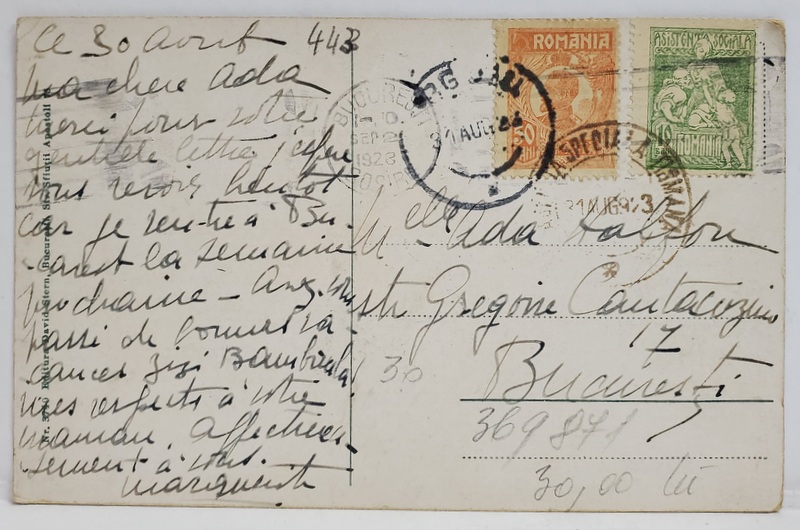 Ce 30 Avout 443
Ma chere Ada
merci pour votre
gentiele lettre j'espere
vous revoir bientot
car je rentre à Bu-
carest la semaine
prochaine - Avez vous
passé de bonnes va
cances Zizi
mes respects à votre
maman. Affectueu-
sement à vous.
Marguerite
Nr. 3710 Editura David Stern, Bucuresti Str. Sfintii Apostoli
ROMANIA
50
ASISTENTA SOCIALA
10 ROMANIA
BUCUREȘTI
SEP 2
1923
31 AUG 23
SPECIALA
31 AUG 923
Melle Ada
str. Gregoire Cantacuzino
17
Bucuresti
30
369871
30,00 lei